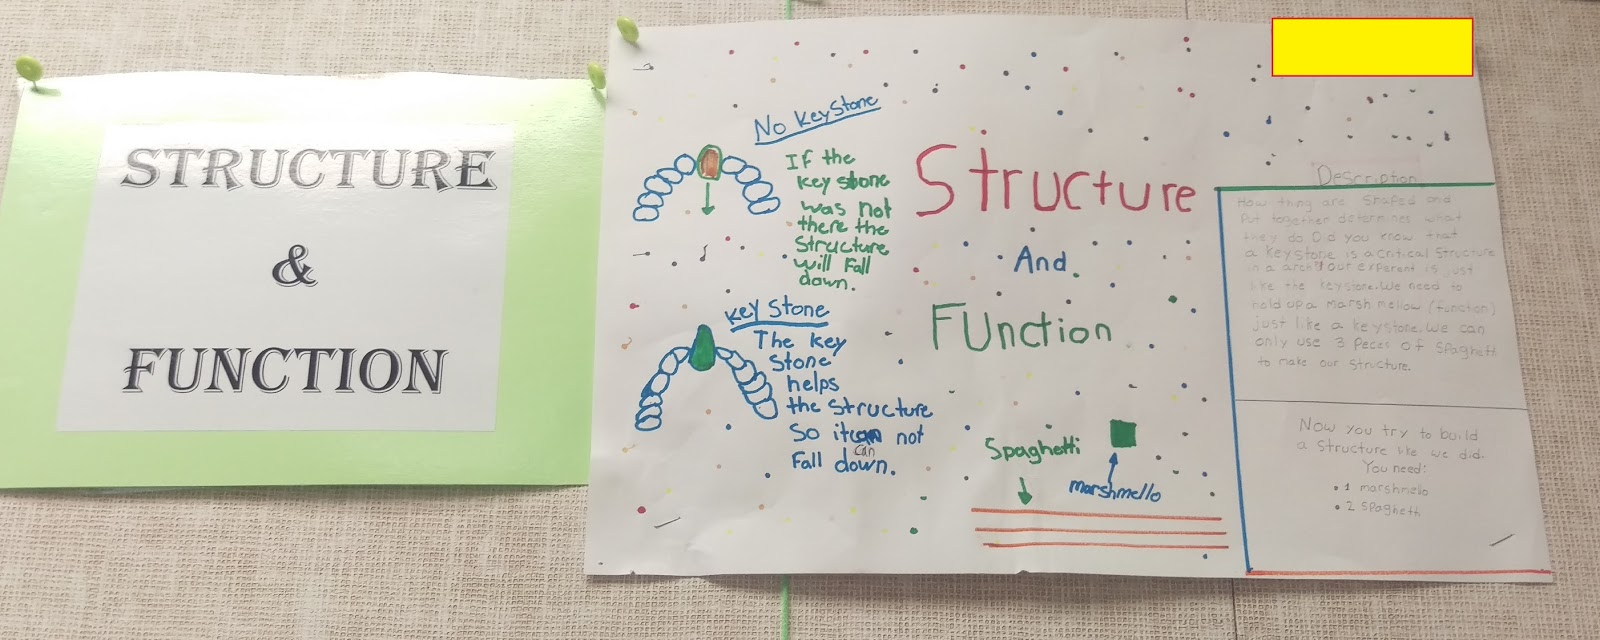 STRUCTURE
&
FUNCTION
No KeyStone
If the
key stone
was not
there the
Structure
will fall
down.
Key Stone
The key
Stone
helps
the Structure
So it can not
can
Fall down.
Structure
And
FUnction
Spaghetti
marshmello
Description
How thing are Shaped and
Put together determines what
they do. Did you know that
a Keystone is a critical Structure
in a arch? our experent is just
like the keystone. We need to
hold up a marsh mellow (function)
just like a keystone. We can
only use 3 peces of Spaghetti
to make our Structure.
Now you try to build
a structure like we did.
You need:
• 1 marshmello
• 2 Spaghetti